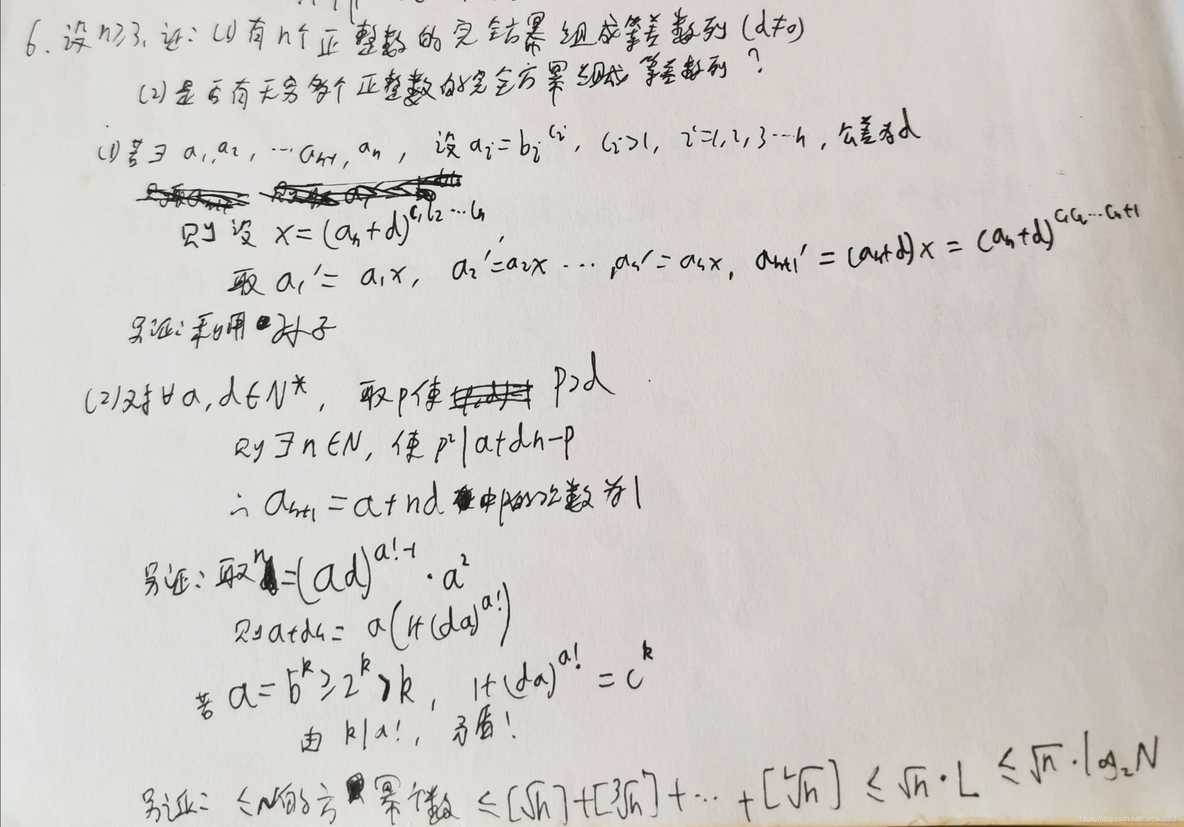 6. 设n≥3, 证: (1) 有n个正整数的完全方幂组成等差数列 (d≠0)
(2) 是否有无穷多个正整数的完全方幂组成等差数列?
(1) 若∃ a₁,a₂, ⋯ aₙ₋₁, aₙ, 设 aᵢ=bᵢ^{cᵢ}, cᵢ>1, i=1,2,3⋯n, 公差为d
则设 x=(aₙ+d)^{c₁c₂⋯cₙ}
取 a₁′=a₁x, a₂′=a₂x ⋯, aₙ′=aₙx, aₙ₊₁′=(aₙ+d)x=(aₙ+d)^{c₁c₂⋯cₙ+1}
另证: 利用孙子
(2) 对∀a,d∈N*, 取p使 p>d
则∃n∈N, 使 p²|a+dn-p
∴ aₙ₊₁=a+nd 中p的次数为1
另证: 取n=(ad)^{a!-1}·a²
则a+dn=a(1+(da)^{a!})
若 a=b^k≥2^k>k, 1+(da)^{a!}=c^k
由 k|a!, 矛盾!
另证: ≤N的方幂个数 ≤[√n]+[³√n]+⋯+[ᴸ√n] ≤√n·L ≤√n·log₂N